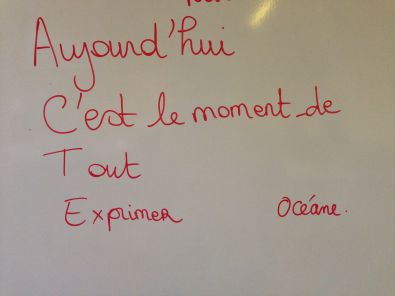 Aujourd'hui
C'est le moment de
Tout
Exprimer Océane.